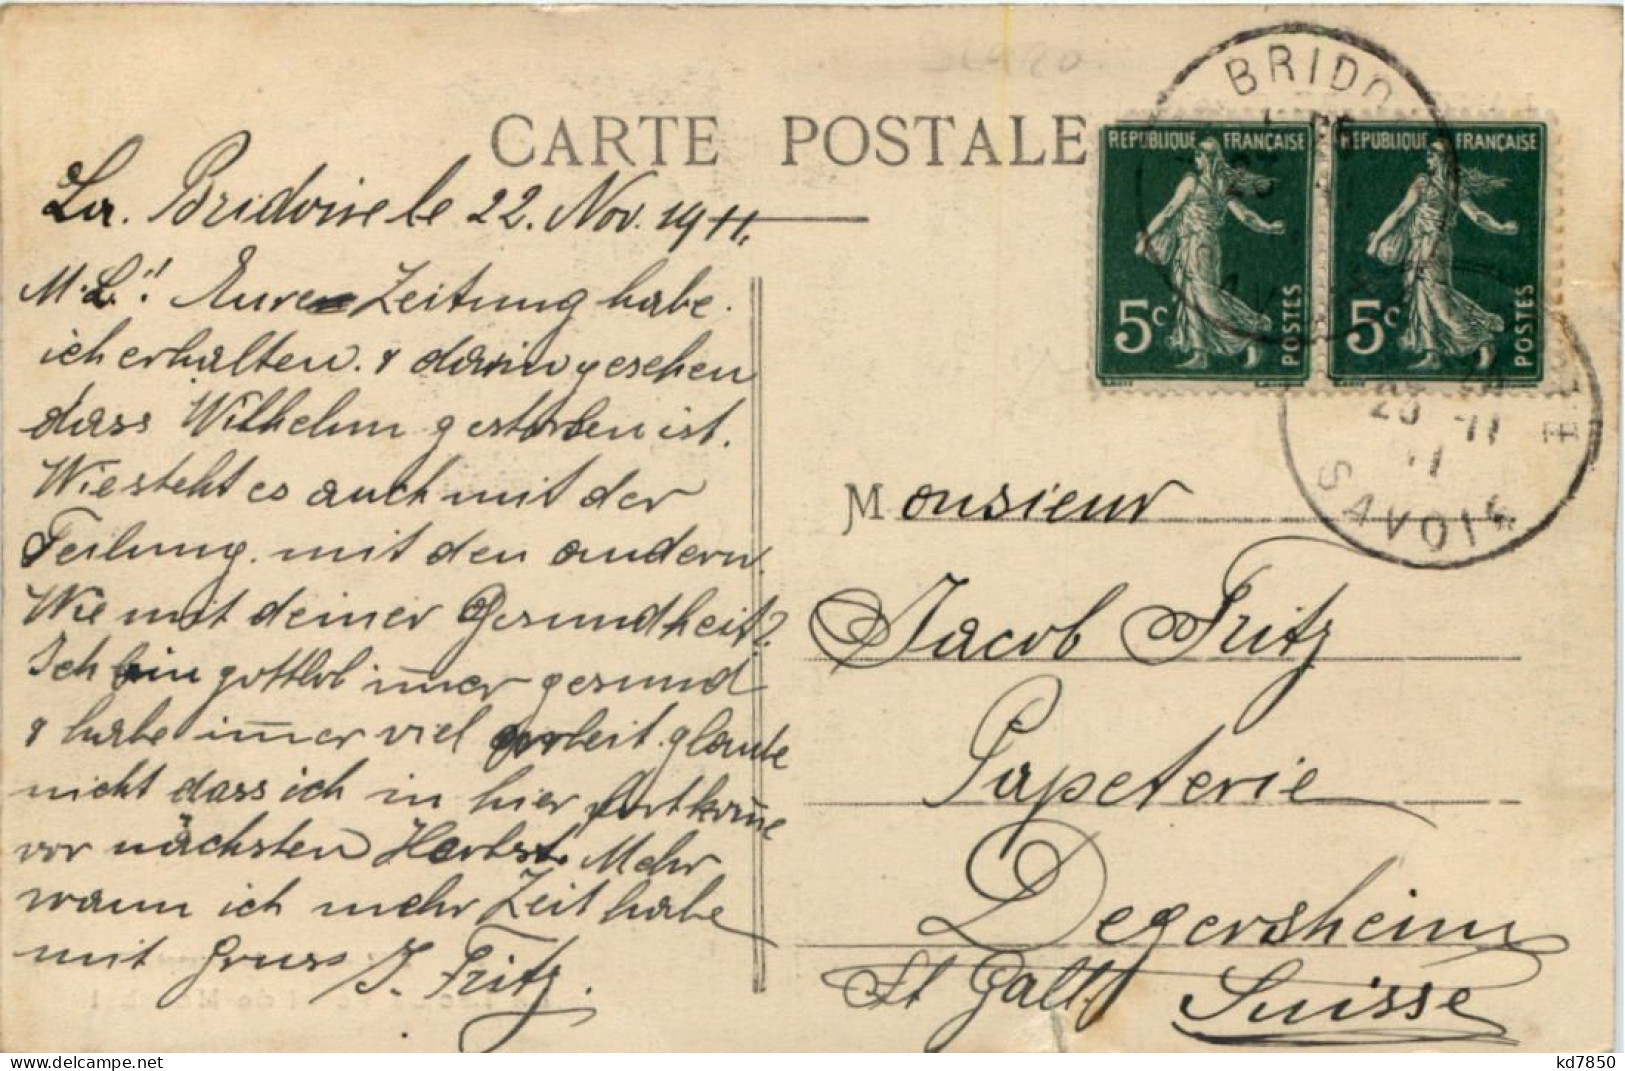 CARTE POSTALE
La Bridoire le 22. Nov. 1911.
M. L.! Eure Zeitung habe
ich erhalten. & darin gesehen
dass Wilhelm gestorben ist.
Wie steht es auch mit der
Teilung. mit den andern.
Wie mit deiner Gesundheit?
Ich bin gottlob im̅er gesund
& habe im̅er viel arbeit. glaube
nicht dass ich in hier fortkom̅e
vor nächsten Herbst. Mehr
wann ich mehr Zeit habe
mit Gruss J. Fritz.
BRIDO
REPUBLIQUE FRANÇAISE
5c POSTES
REPUBLIQUE FRANÇAISE
5c POSTES
11
SAVOIE
Monsieur
Jacob Fritz
Papeterie
Degersheim
St Gall.
Suisse
www.delcampe.net
kd7850